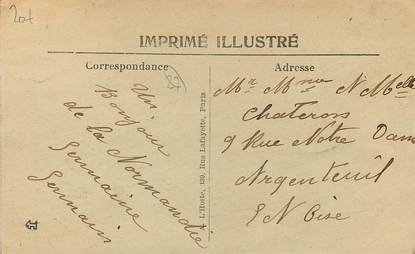 20f
IMPRIMÉ ILLUSTRÉ
Correspondance
Adresse
Un
Bonjour
de la Normandie
Germaine
Germain
L'Hoste, 139, Rue Lafayette, Paris
Mr Mme N Melle
Chateron
9 Rue Notre Dam
Argenteuil
S N Oise